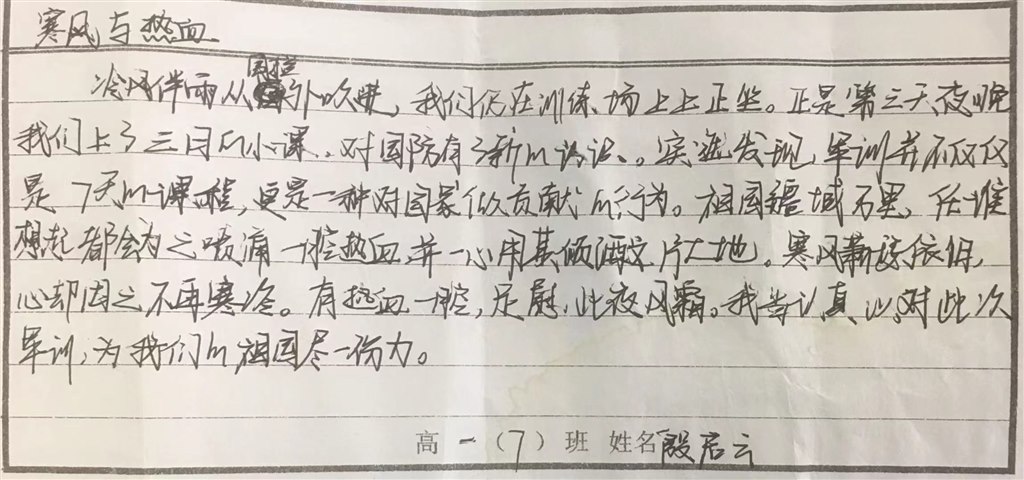 寒风与热血
冷风伴雨从围栏外吹进，我们仍在训练场上上正坐。正是第三天夜晚
我们上了三日的小课，对国防有了新的认识。实逃发现，军训并不仅仅
是7天的课程，更是一种对国家做贡献的行为。祖国疆域万里，任谁
想起都会为之喷涌一腔热血，并一心用其倾洒这片大地。寒风萧萧依旧，
心却因之不再寒冷。有热血一腔，足慰此夜风霜。我当认真以对此次
军训，为我们的祖国尽一份力。
高一（7）班 姓名 殷启云